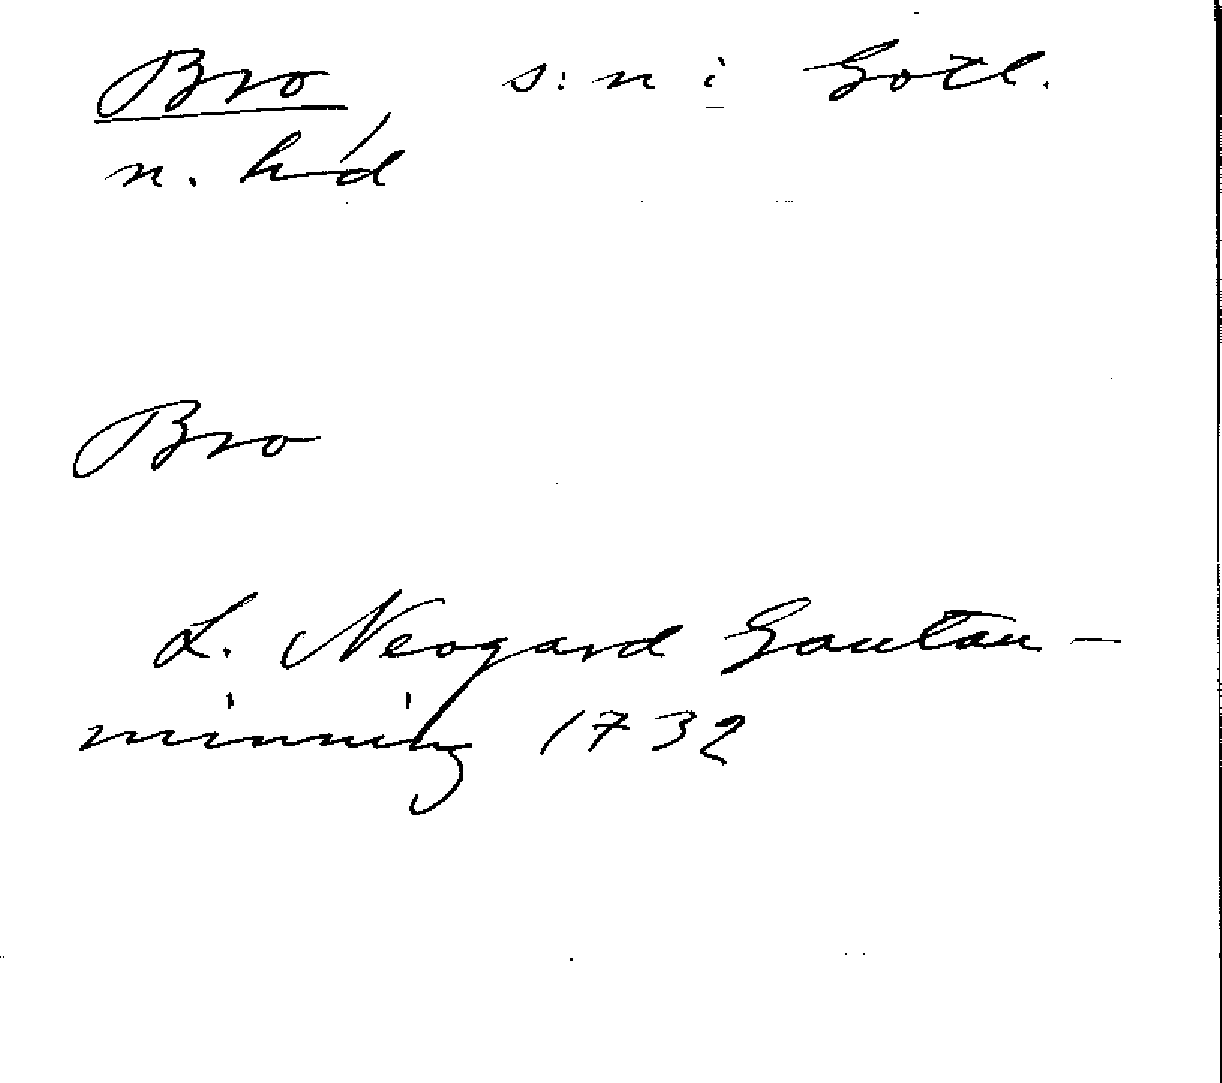 Bro s:n i Gotl.
n. hd
Bro
L. Neogard Gautau-
minning 1732